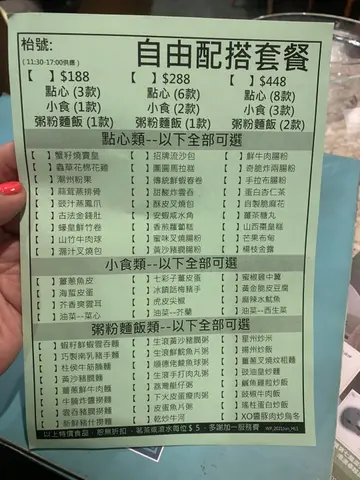 枱號:
自由配搭套餐
(11:30-17:00供應)
【 】$188 【 】$288 【 】$448
點心 (3款) 點心 (6款) 點心 (8款)
小食 (1款) 小食 (2款) 小食 (3款)
粥粉麵飯 (1款) 粥粉麵飯 (1款) 粥粉麵飯 (2款)
點心類--以下全部可選
【 】蟹籽燒賣皇 【 】招牌流沙包 【 】鮮牛肉腸粉
【 】蟲草花棉花雞 【 】園圃馬拉糕 【 】奇脆炸兩腸粉
【 】潮州粉果 【 】傳統鮮蝦春卷 【 】手拉布腸粉
【 】蒜茸蒸排骨 【 】甜酸炸雲吞 【 】蛋白杏仁茶
【 】豉汁蒸鳳爪 【 】酥皮叉燒包 【 】自製腍麻花
【 】古法金錢肚 【 】安蝦咸水角 【 】薑茶糖丸
【 】蠔皇鮮竹卷 【 】香煎蘿蔔糕 【 】山西棗皇糕
【 】山竹牛肉球 【 】蜜味叉燒腸粉 【 】芒果布甸
【 】醬汁叉燒包 【 】黃沙豬膶腸粉 【 】楊枝金露
小食類--以下全部可選
【 】薑蔥魚皮 【 】七彩子薑皮蛋 【 】蜜椒雞中翼
【 】海蜇皮蛋 【 】冰鎮話梅豬手 【 】黃金脆皮豆腐
【 】芥香煲雲耳 【 】虎皮尖椒 【 】麻辣水魷魚
【 】油菜--菜心 【 】油菜--芥蘭 【 】油菜--西生菜
粥粉麵飯類--以下全部可選
【 】蝦籽鮮蝦雲吞麵 【 】生滾黃沙豬膶粥 【 】星州炒米
【 】巧製南乳豬手麵 【 】生滾鮮鯇魚片粥 【 】揚州炒飯
【 】柱侯牛筋腩麵 【 】順德佬鯪魚球粥 【 】薑蔥叉燒炆粗麵
【 】黃沙豬膶麵 【 】生滾手打肉丸粥 【 】豉油皇炒麵
【 】薑蔥鮮牛肉麵 【 】荔灣艇仔粥 【 】鹹魚雞粒炒飯
【 】牛腩炸醬撈麵 【 】下火皮蛋瘦肉粥 【 】豉椒牛肉飯
【 】雲吞豬膶撈麵 【 】皮蛋魚片粥 【 】瑤柱蛋白炒飯
【 】新鮮豬什撈麵 【 】乾炒牛河 【 】XO醬豚肉炒烏冬
以上特價食品、股無折扣、茗茶或滾水每位$5、多謝加一服務費